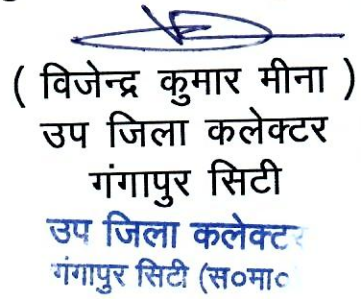 ( विजेन्द्र कुमार मीना )
उप जिला कलेक्टर
गंगापुर सिटी
उप जिला कलेक्टर
गंगापुर सिटी (स०मा०